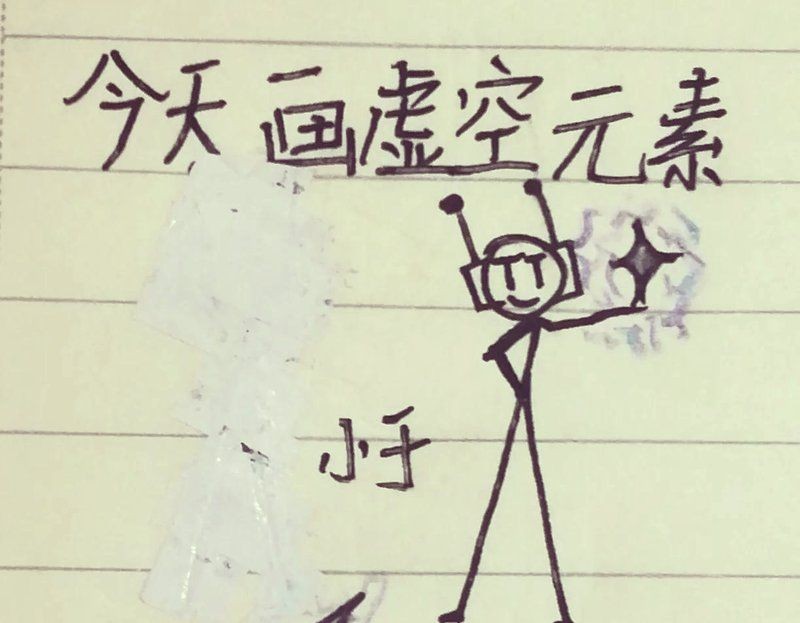 今天画虚空元素
小于